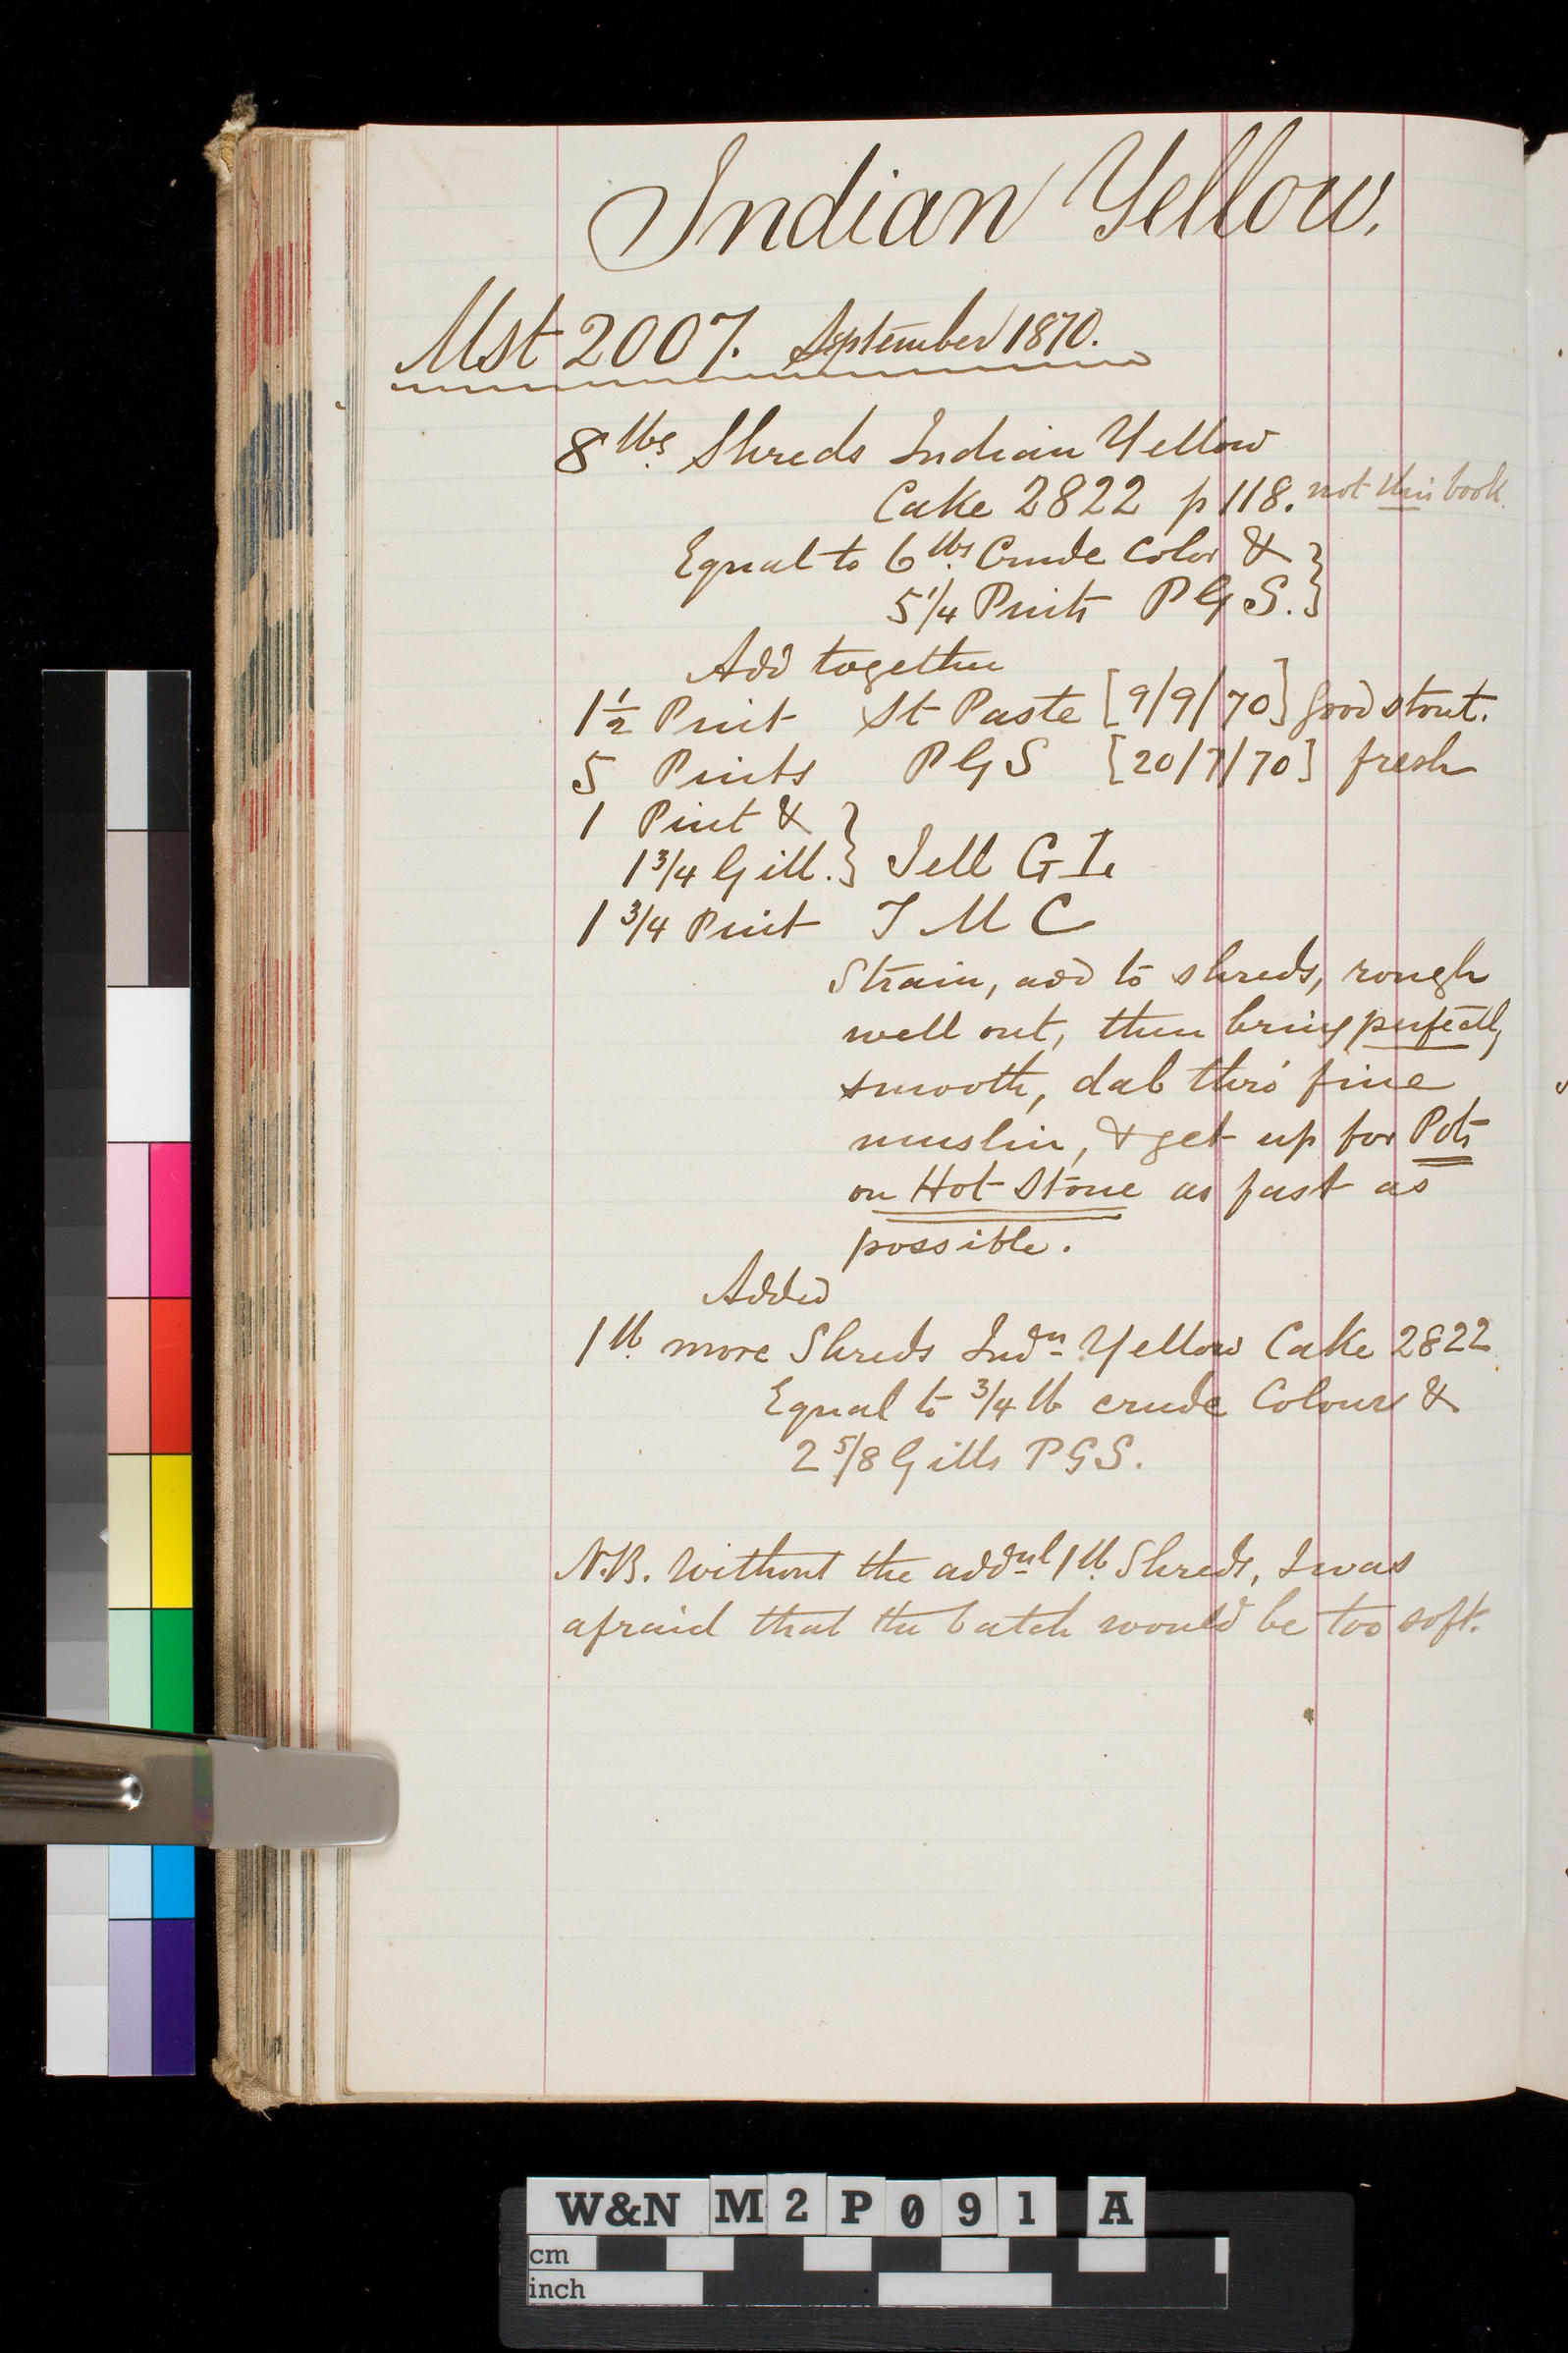 Indian Yellow.
Mst 2007. September 1870.
8 lbs. Shreds Indian Yellow
Cake 2822 p 118. not this book.
Equal to 6 lbs. Crude Color &
5 1/4 Pints P G S.
Add together
1 1/2 Pint St Paste [9/9/70] good stout.
5 Pints P G S [20/7/70] fresh
1 Pint &
1 3/4 Gill. Jell G I.
1 3/4 Pint T M C
Strain, add to shreds, rough
well out, then bring perfectly
smooth, dab thro' fine
muslin, & get up for Pots
on Hot Stone as fast as
possible.
Added
1 lb. more Shreds Indn Yellow Cake 2822
Equal to 3/4 lb crude Colour &
2 5/8 Gills P G S.
N.B. Without the addnl 1 lb. Shreds, I was
afraid that the batch would be too soft.
W&N M 2 P 0 9 1 A
cm
inch